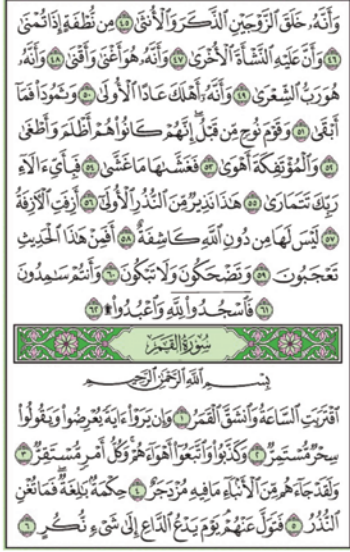 وَأَنَّهُۥ خَلَقَ ٱلزَّوْجَيْنِ ٱلذَّكَرَ وَٱلْأُنثَىٰ ٤٥ مِن نُّطْفَةٍ إِذَا تُمْنَىٰ
٤٦ وَأَنَّ عَلَيْهِ ٱلنَّشْأَةَ ٱلْأُخْرَىٰ ٤٧ وَأَنَّهُۥ هُوَ أَغْنَىٰ وَأَقْنَىٰ ٤٨ وَأَنَّهُۥ
هُوَ رَبُّ ٱلشِّعْرَىٰ ٤٩ وَأَنَّهُۥٓ أَهْلَكَ عَادًا ٱلْأُولَىٰ ٥٠ وَثَمُودَا۟ فَمَآ
أَبْقَىٰ ٥١ وَقَوْمَ نُوحٍ مِّن قَبْلُ إِنَّهُمْ كَانُوا۟ هُمْ أَظْلَمَ وَأَطْغَىٰ
٥٢ وَٱلْمُؤْتَفِكَةَ أَهْوَىٰ ٥٣ فَغَشَّىٰهَا مَا غَشَّىٰ ٥٤ فَبِأَىِّ ءَالَآءِ
رَبِّكَ تَتَمَارَىٰ ٥٥ هَٰذَا نَذِيرٌ مِّنَ ٱلنُّذُرِ ٱلْأُولَىٰٓ ٥٦ أَزِفَتِ ٱلْءَازِفَةُ
٥٧ لَيْسَ لَهَا مِن دُونِ ٱللَّهِ كَاشِفَةٌ ٥٨ أَفَمِنْ هَٰذَا ٱلْحَدِيثِ
تَعْجَبُونَ ٥٩ وَتَضْحَكُونَ وَلَا تَبْكُونَ ٦٠ وَأَنتُمْ سَٰمِدُونَ
٦١ فَٱسْجُدُوا۟ لِلَّهِ وَٱعْبُدُوا۟ ۩ ٦٢
سُورَةُ القَمَرِ
بِسْمِ ٱللَّهِ ٱلرَّحْمَٰنِ ٱلرَّحِيمِ
ٱقْتَرَبَتِ ٱلسَّاعَةُ وَٱنشَقَّ ٱلْقَمَرُ ١ وَإِن يَرَوْا۟ ءَايَةً يُعْرِضُوا۟ وَيَقُولُوا۟
سِحْرٌ مُّسْتَمِرٌّ ٢ وَكَذَّبُوا۟ وَٱتَّبَعُوٓا۟ أَهْوَآءَهُمْ وَكُلُّ أَمْرٍ مُّسْتَقِرٌّ ٣
وَلَقَدْ جَآءَهُم مِّنَ ٱلْأَنۢبَآءِ مَا فِيهِ مُزْدَجَرٌ ٤ حِكْمَةٌۢ بَٰلِغَةٌ فَمَا تُغْنِ
ٱلنُّذُرُ ٥ فَتَوَلَّ عَنْهُمْ يَوْمَ يَدْعُ ٱلدَّاعِ إِلَىٰ شَىْءٍ نُّكُرٍ ٦